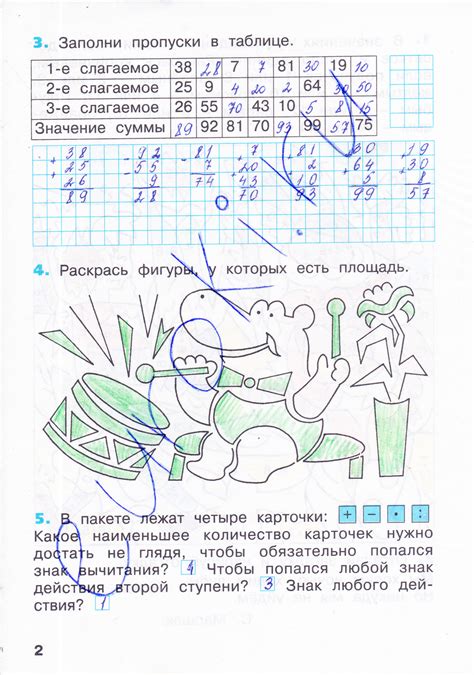 3. Заполни пропуски в таблице.
1-е слагаемое 38 28 7 7 81 30 19 10
2-е слагаемое 25 9 4 20 2 64 30 50
3-е слагаемое 26 55 70 43 10 5 8 15
Значение суммы 89 92 81 70 93 99 57 75
38 92 81 7 81 30 19
+ 25 - 55 - 7 + 20 + 2 + 64 + 30
+ 26 9 74 + 43 + 10 + 5 + 8
89 28 70 93 99 57
4. Раскрась фигуры, у которых есть площадь.
5. В пакете лежат четыре карточки: + − • :
Какое наименьшее количество карточек нужно
достать не глядя, чтобы обязательно попался
знак вычитания? 4 Чтобы попался любой знак
действия второй ступени? 3 Знак любого дей-
ствия? 1
2